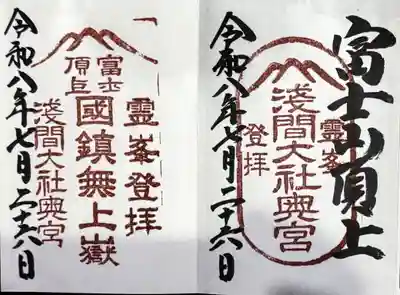 富士山頂上
霊峯
登拝
浅間大社奥宮
令和八年七月二十八日
霊峯登拝
富士
頂上
國鎮無上嶽
浅間大社奥宮
令和八年七月二十八日